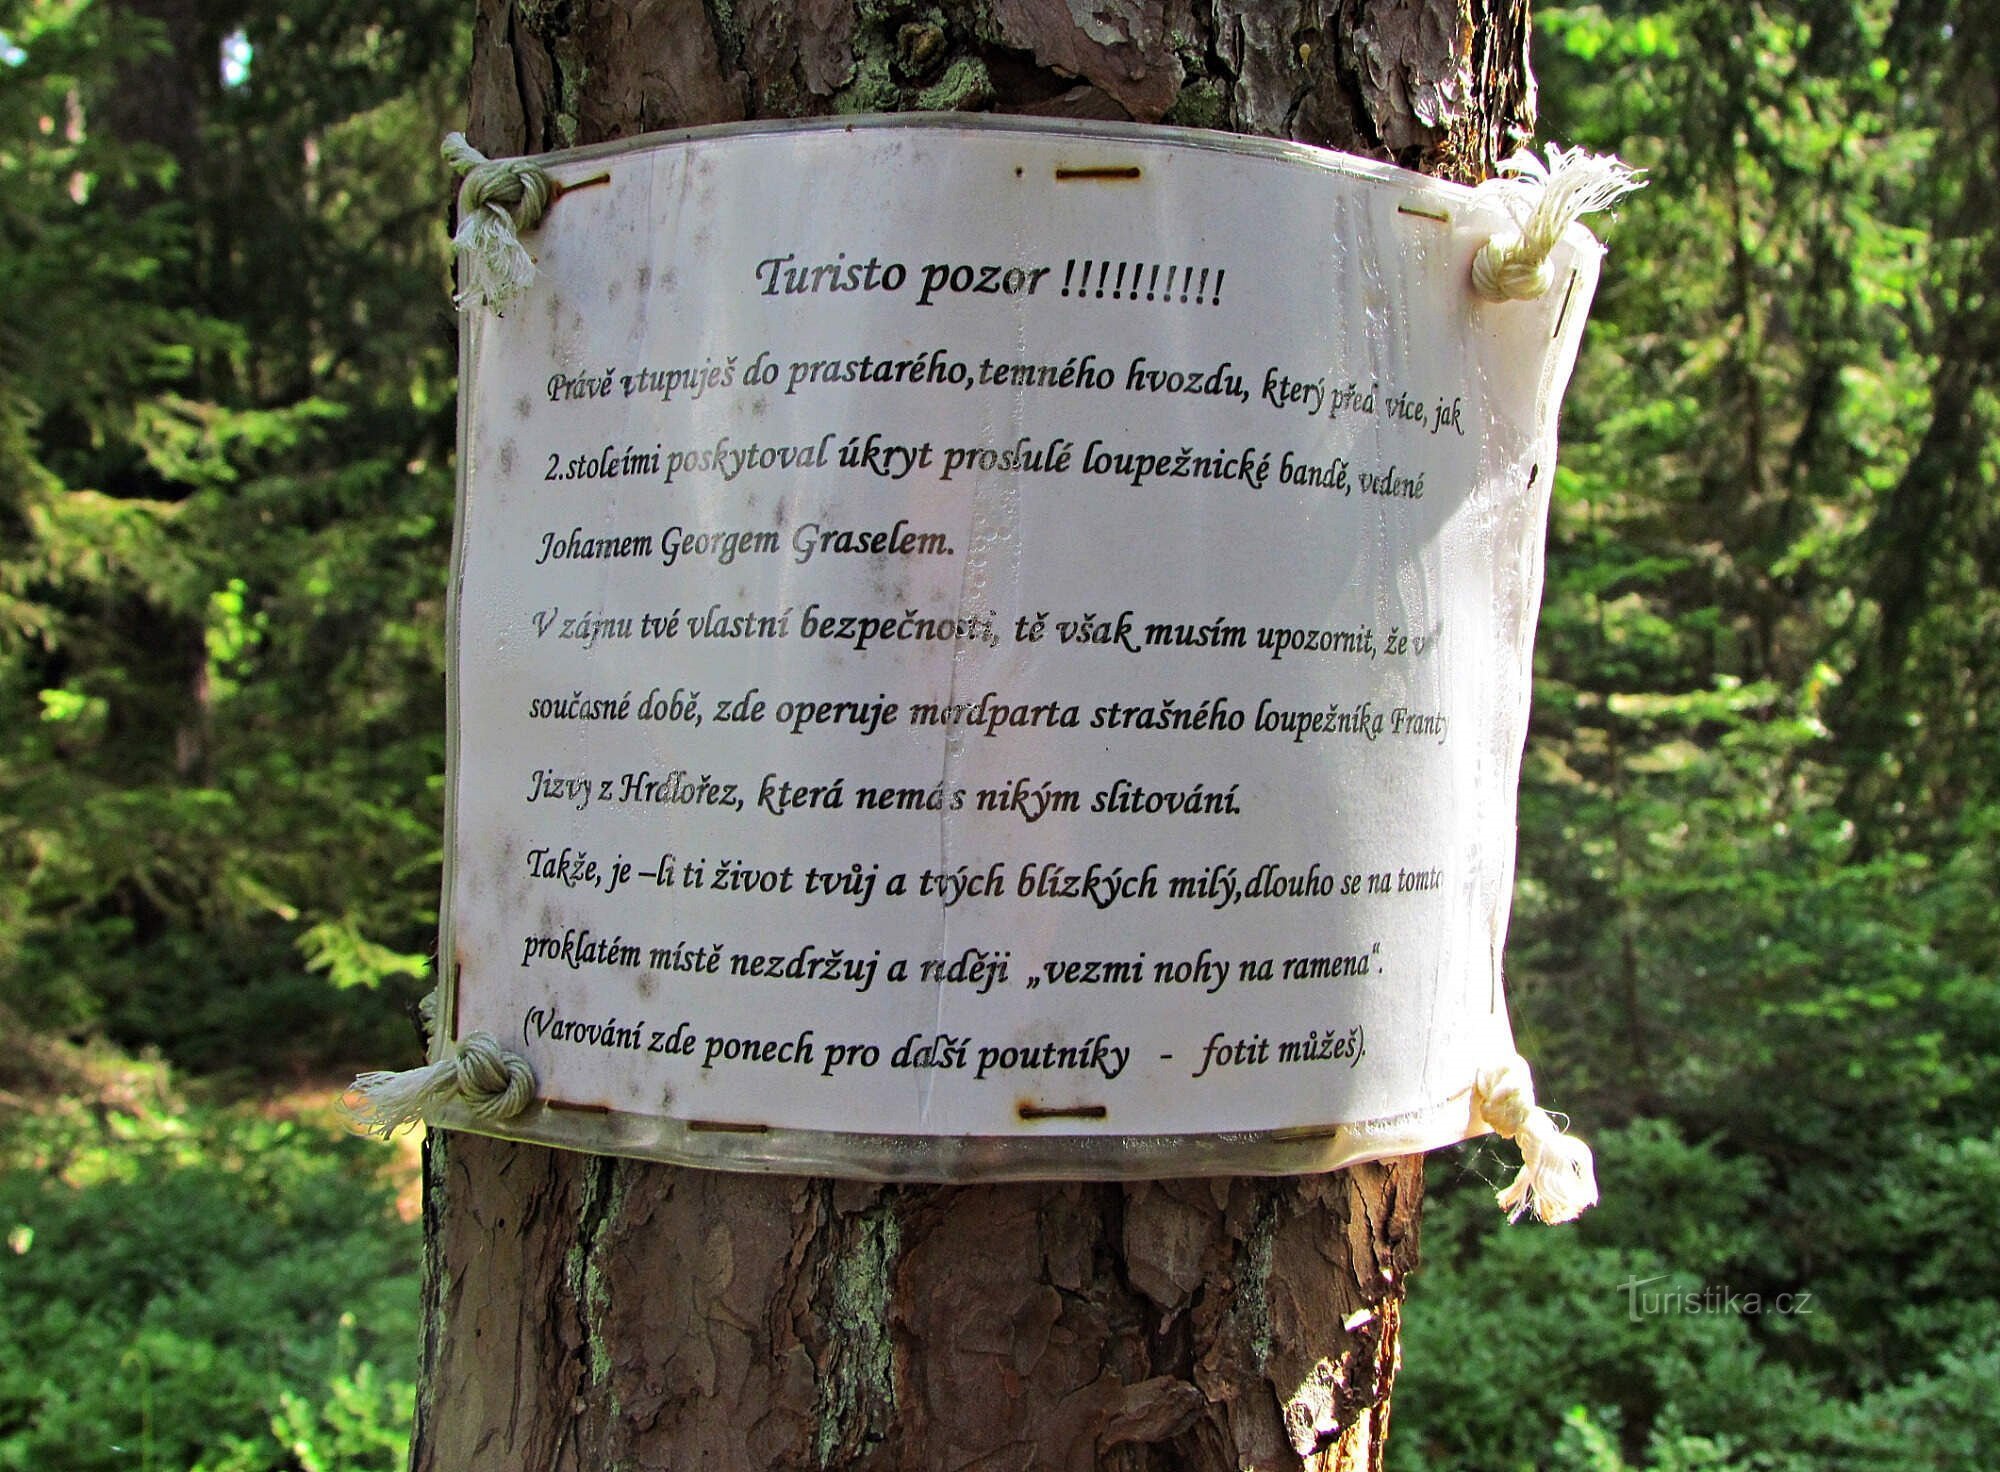 Turisto pozor !!!!!!!!!!
Právě vtupuješ do prastarého,temného hvozdu, který před více, jak
2.stoleími poskytoval úkryt proslulé loupežnické bandě, vedené
Johamem Georgem Graselem.
V zájmu tvé vlastní bezpečnosti, tě však musím upozornit, že v
současné době, zde operuje mordparta strašného loupežníka Franty
Jizvy z Hrdlořez, která nemá s nikým slitování.
Takže, je –li ti život tvůj a tvých blízkých milý,dlouho se na tomto
proklatém místě nezdržuj a raději „vezmi nohy na ramena“.
(Varování zde ponech pro další poutníky - fotit můžeš).
Turistika.cz